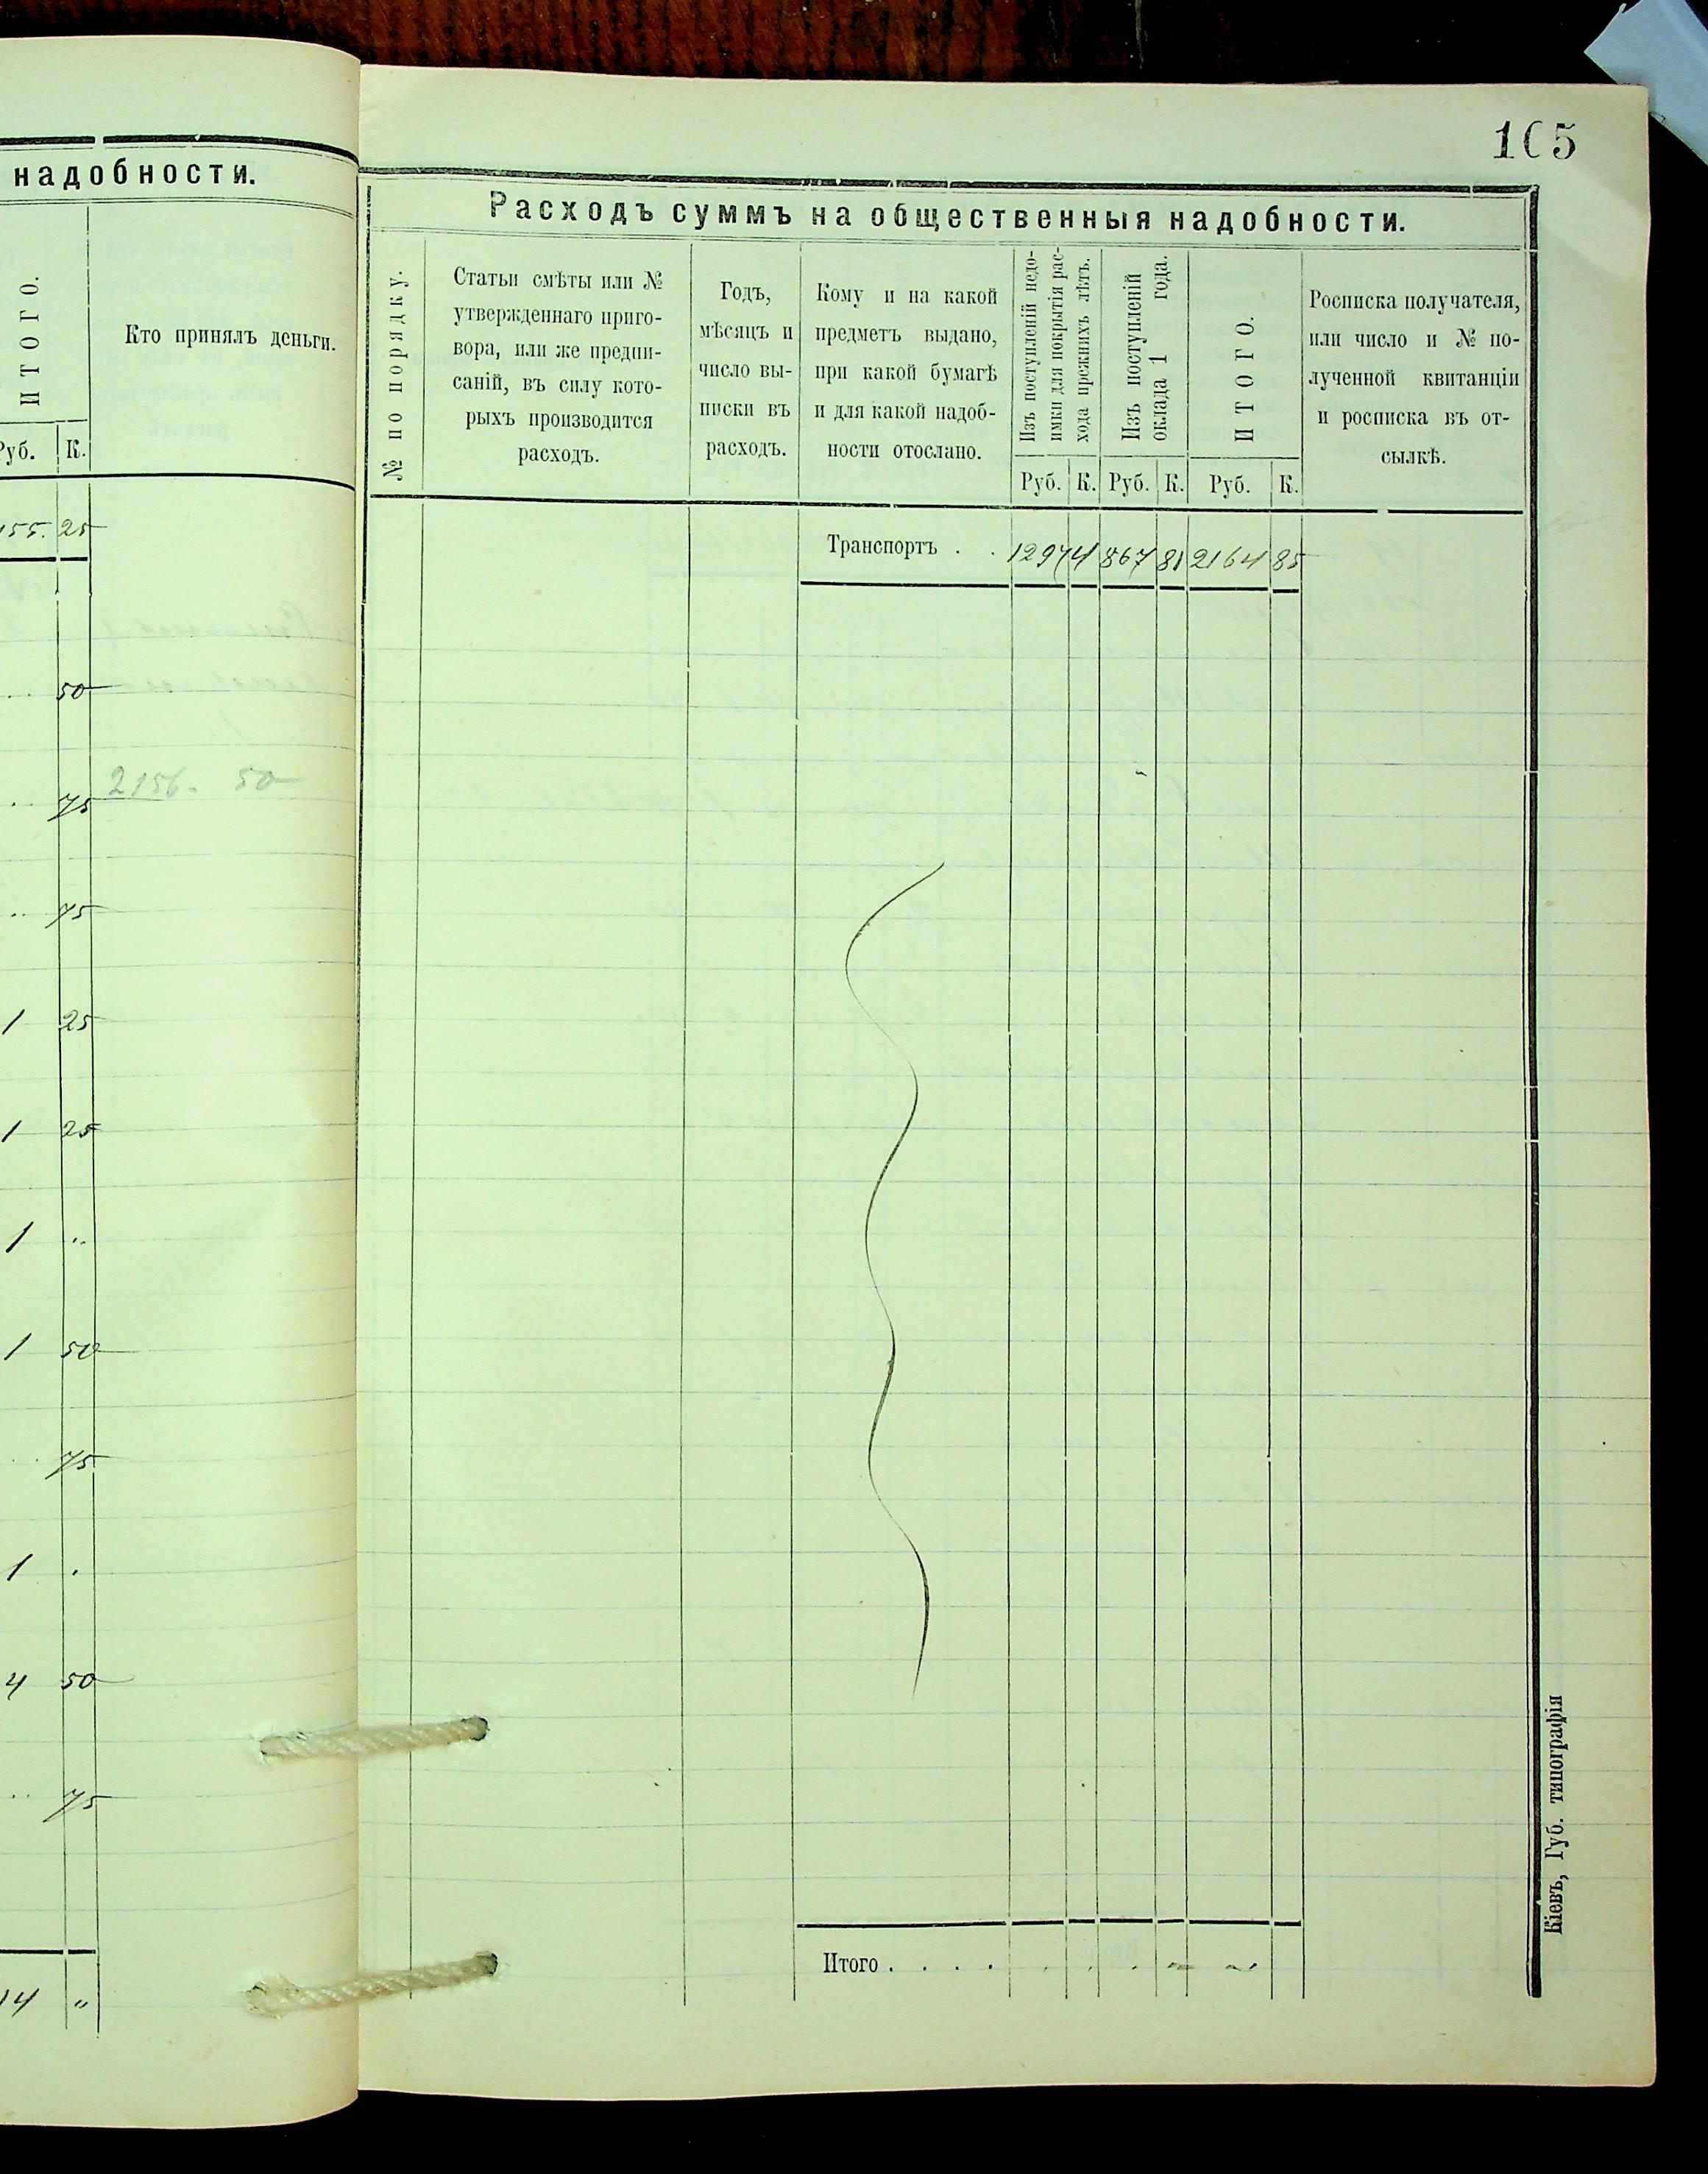 надобности.
ИТОГО.
Кто принялъ деньги.
Руб. К.
155. 25
50
75
2156. 50
75
1 25
1 25
1 ..
1 50
75
1 .
4 50
75
14 „
105
Расходъ суммъ на общественныя надобности.
№ по порядку.
Статьи смѣты или №
утвержденнаго приго-
вора, или же предпи-
саній, въ силу кото-
рыхъ производится
расходъ.
Годъ,
мѣсяцъ и
число вы-
писки въ
расходъ.
Кому и на какой
предметъ выдано,
при какой бумагѣ
и для какой надоб-
ности отослано.
Изъ поступленій недо-
имки для покрытія рас-
хода прежнихъ лѣтъ.
Изъ поступленій
оклада 1 года.
ИТОГО.
Росписка получателя,
или число и № по-
лученной квитанціи
и росписка въ от-
сылкѣ.
Руб. К. Руб. К. Руб. К.
Транспортъ . . 1297 4 867 81 2164 85
Итого . . . .
Кіевъ, Губ. типографія